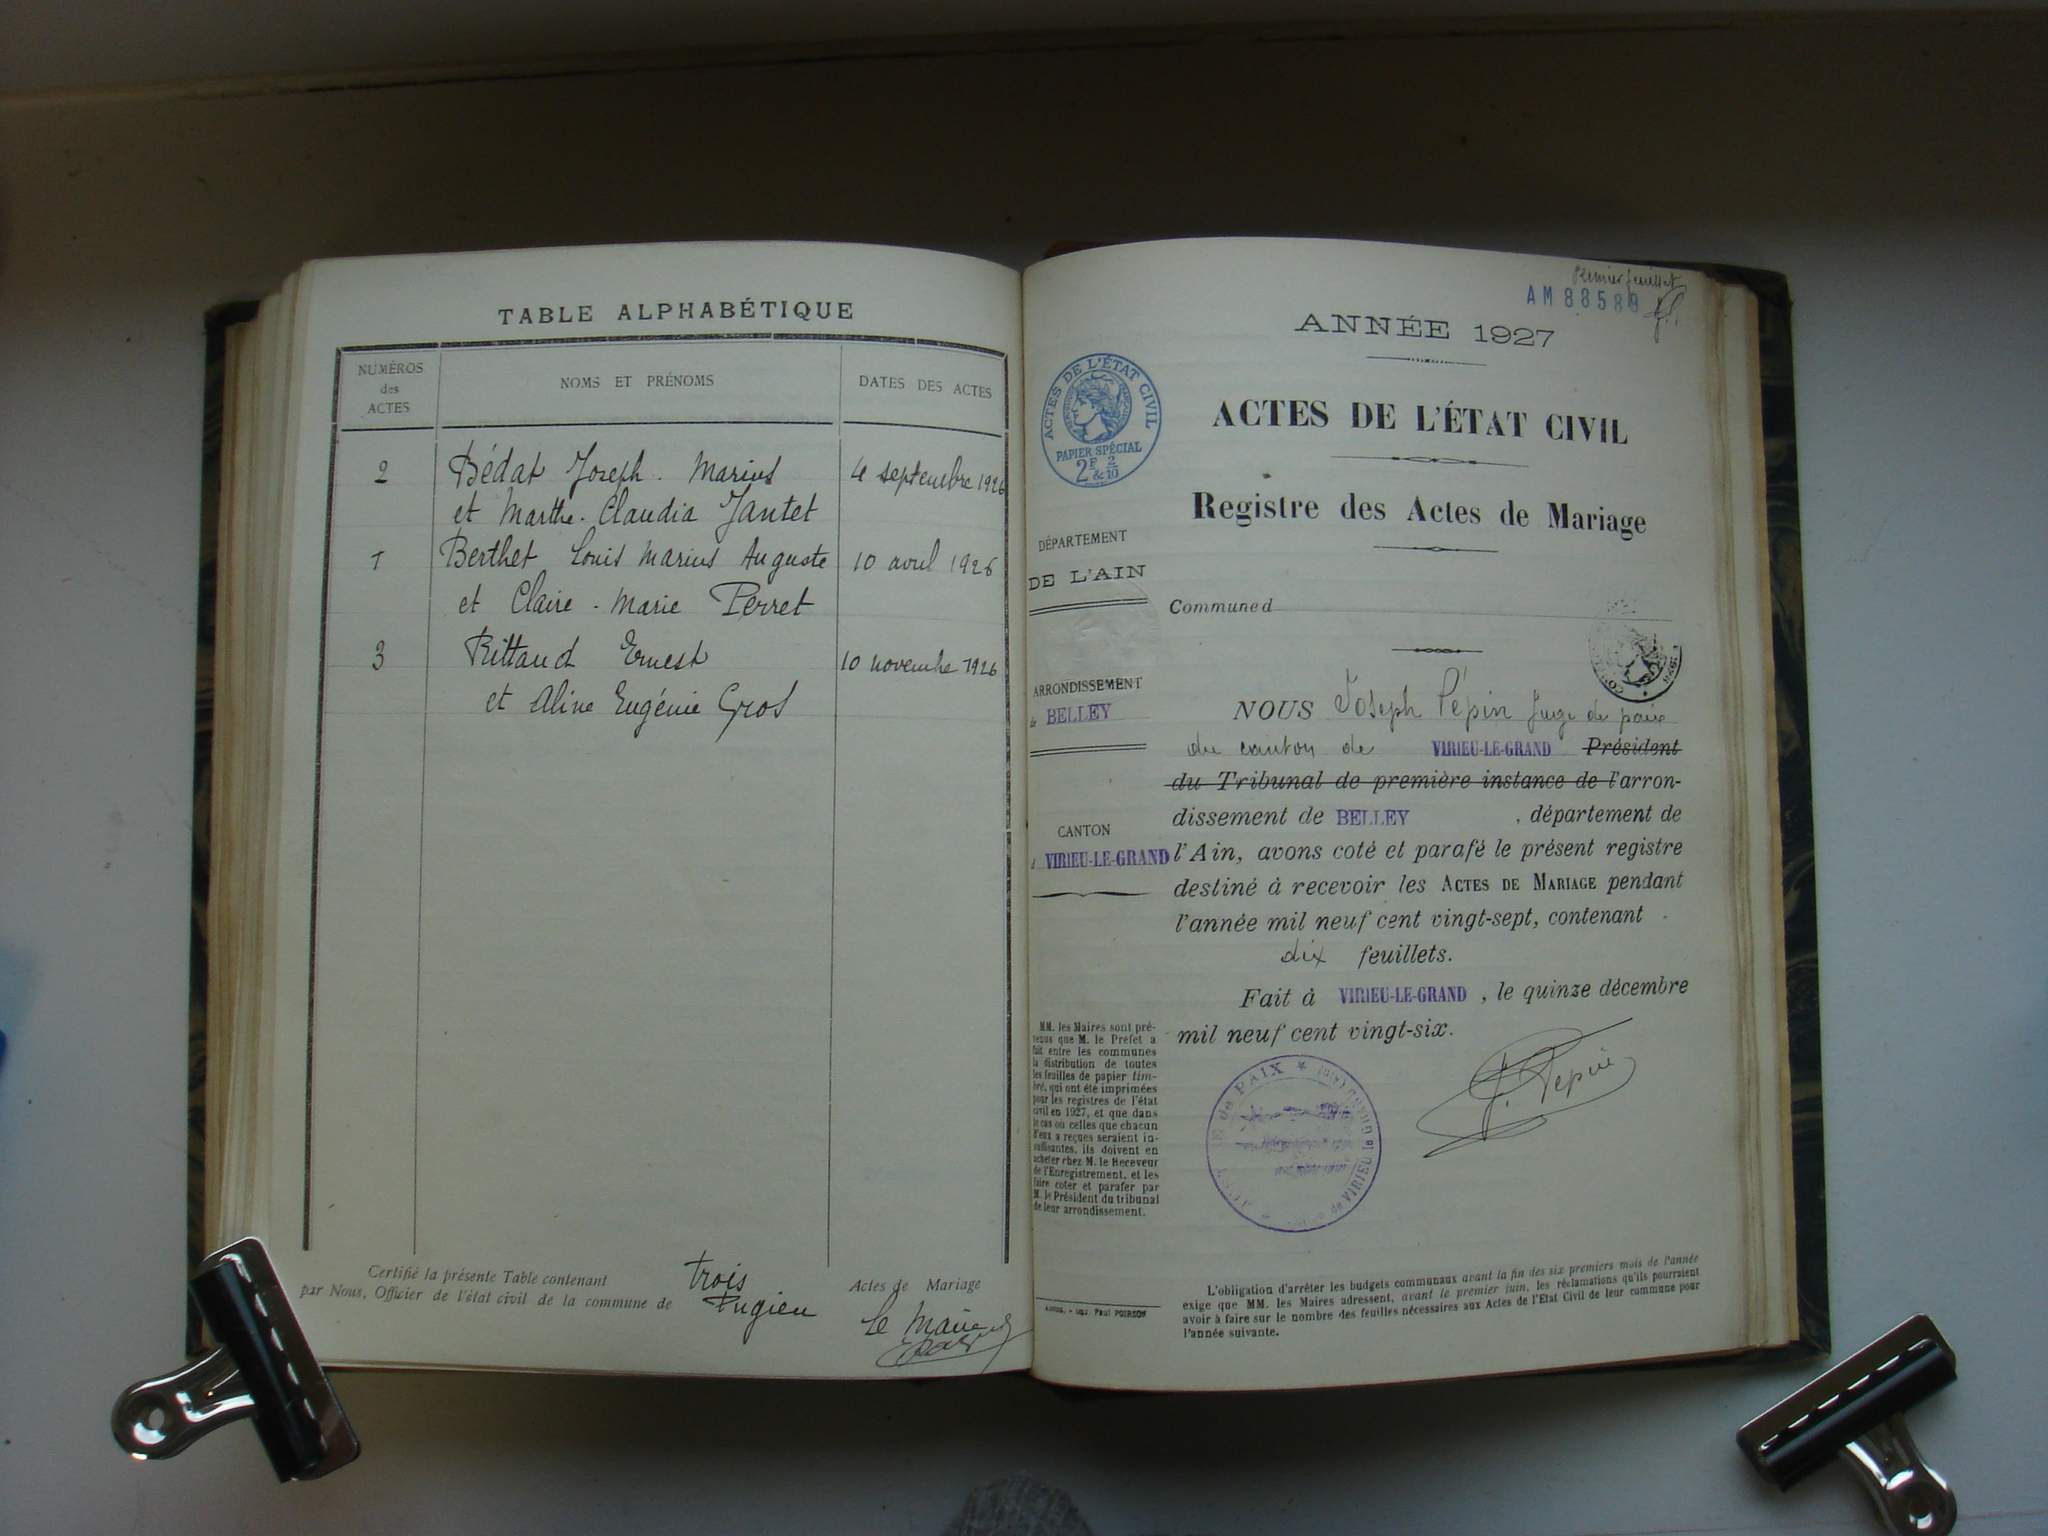 TABLE ALPHABÉTIQUE
NUMÉROS
des
ACTES
NOMS ET PRÉNOMS
DATES DES ACTES
2 Bédat Joseph. Marius 4 septembre 1926
et Marthe. Claudia Jantet
1 Berthet Louis Marius Auguste 10 avril 1926
et Claire. Marie Perret
3 Rittaud Ernest 10 novembre 1926
et Aline Eugénie Gros
Certifié la présente Table contenant trois Actes de Mariage
par Nous, Officier de l'état civil de la commune de Pugieu
Le Maire
Premier feuillet
AM 88589
ANNÉE 1927
ACTES DE L'ÉTAT CIVIL
PAPIER SPÉCIAL
2F & 2/10
ACTES DE L'ÉTAT CIVIL
Registre des Actes de Mariage
DÉPARTEMENT
DE L'AIN
Commune d
ARRONDISSEMENT
de BELLEY
CANTON
VIRIEU-LE-GRAND
NOUS Joseph Pépin Juge de paix
du canton de VIRIEU-LE-GRAND Président
du Tribunal de première instance de l'arron-
dissement de BELLEY, département de
l'Ain, avons coté et parafé le présent registre
destiné à recevoir les ACTES DE MARIAGE pendant
l'année mil neuf cent vingt-sept, contenant
dix feuillets.
Fait à VIRIEU-LE-GRAND, le quinze décembre
mil neuf cent vingt-six.
J. Pépin
de PAIX * VIRIEU le GRAND (AIN)
MM. les Maires sont pré-
venus que M. le Prefet a
fait entre les communes
la distribution de toutes
les feuilles de papier tim-
bré, qui ont été imprimées
pour les registres de l'état
civil en 1927, et que dans
le cas où celles que chacun
d'eux a reçues seraient in-
suffisantes, ils doivent en
acheter chez M. le Receveur
de l'Enregistrement, et les
faire coter et parafer par
M. le Président du tribunal
de leur arrondissement.
Imp. Paul POIRSON
L'obligation d'arrêter les budgets communaux avant la fin des six premiers mois de l'année
exige que MM. les Maires adressent, avant le premier juin, les réclamations qu'ils pourraient
avoir à faire sur le nombre des feuilles nécessaires aux Actes de l'Etat Civil de leur commune pour
l'année suivante.